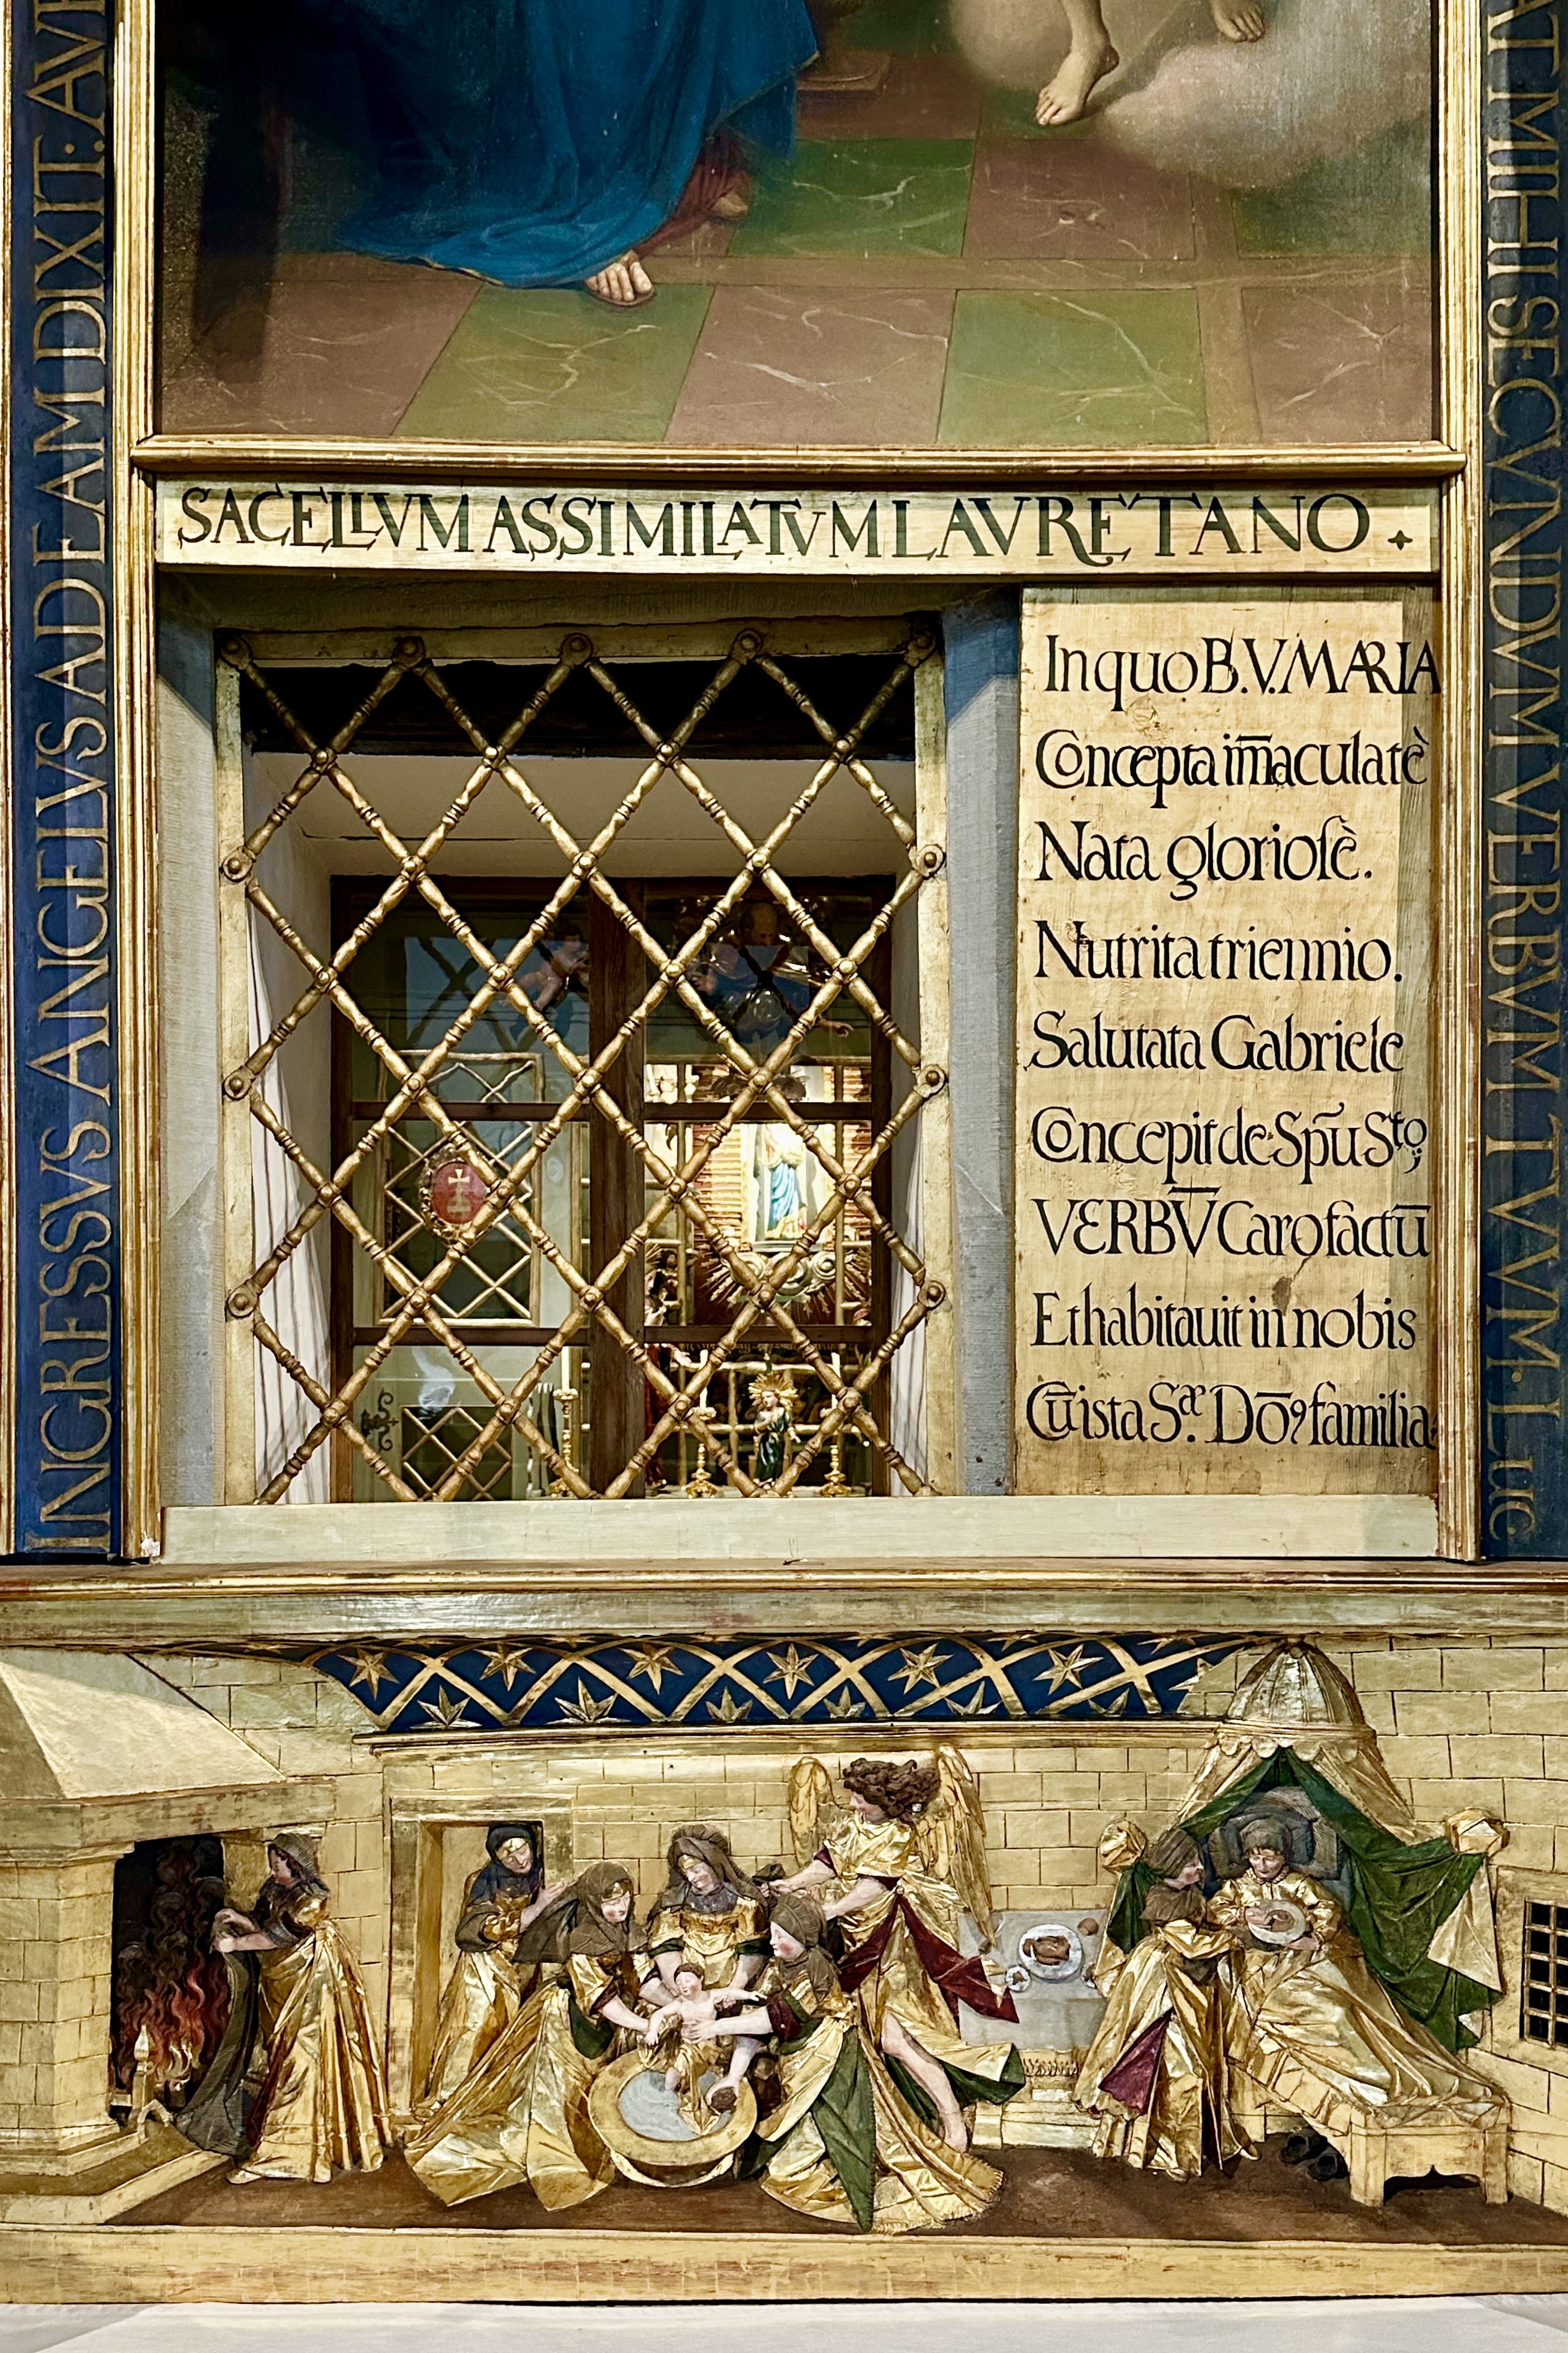 INGRESSVS ANGELVS AD EAM DIXIT. AVE
SACELLVM ASSIMILATVM LAVRETANO
In quo B.V. MARIA
Concepta im̄aculatè
Nata glorioſè.
Nutrita triennio.
Salutata Gabriele
Concepit de Sp̄u Sto,
VERBV̄ Caro factū
Et habitauit in nobis
Cū ista Sa. Dōꝰ familia.
AT MIHI SECVNDVM VERBVM TVVM. Luc